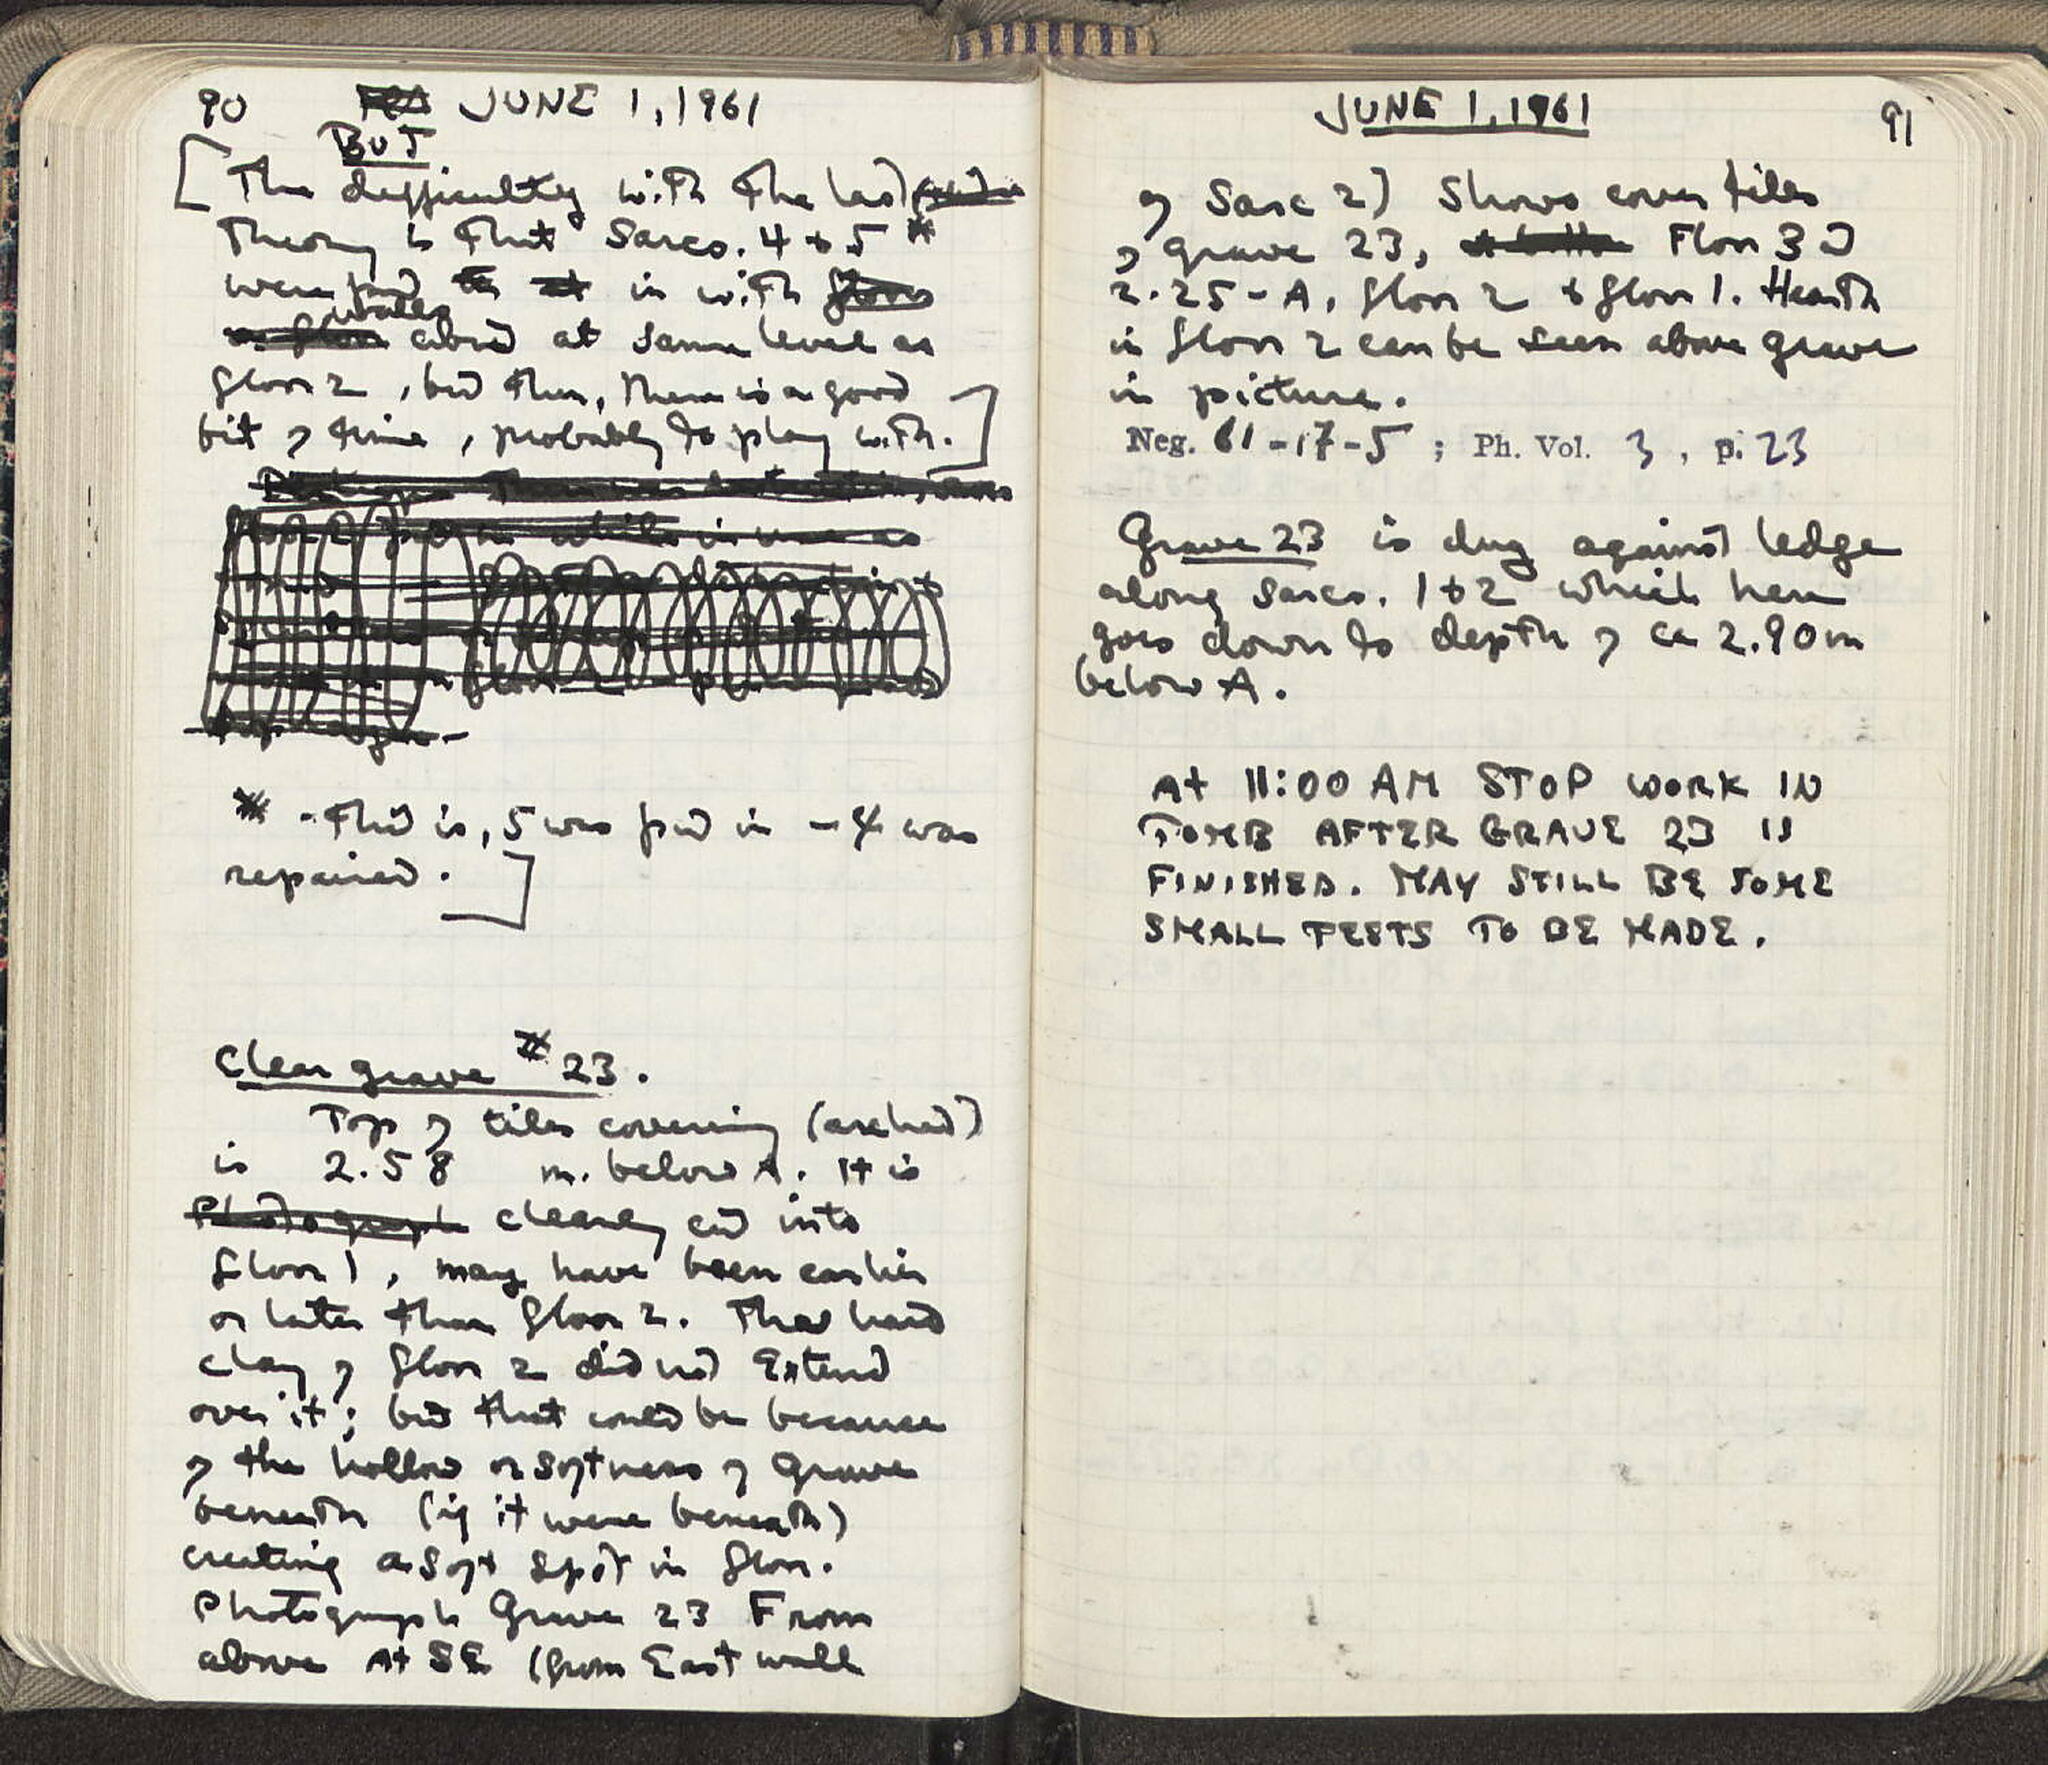 90 JUNE 1, 1961
BUT
[The difficulty with the last
theory is that Sarcs. 4 & 5 *
were put in with
walls
about at same level as
floor 2, but then, there is a good
bit of time, probably to play with.]
* - That is, 5 was put in - 4 was
repaired.]
Clear grave # 23.
Top of tiles covering (arched)
is 2.58 m. below A. It is
Photograph clearly cut into
floor 1, may have been earlier
or later than floor 2. The hard
clay of floor 2 did not extend
over it; but that could be because
of the hollow or softness of grave
beneath (if it were beneath)
creating a soft spot in floor.
Photograph Grave 23 From
above At SE (from East wall
JUNE 1, 1961 91
of Sarc 2) Shows cover tiles
of grave 23, Floor 3 at
2.25 - A, floor 2 & floor 1. Hearth
in floor 2 can be seen above grave
in picture.
Neg. 61-17-5 ; Ph. Vol. 3, p. 23
Grave 23 is dug against ledge
along sarcs. 1 & 2 which here
goes down to depth of ca 2.90 m
below A.
At 11:00 AM STOP WORK IN
TOMB AFTER GRAVE 23 IS
FINISHED. MAY STILL BE SOME
SMALL TESTS TO BE MADE.